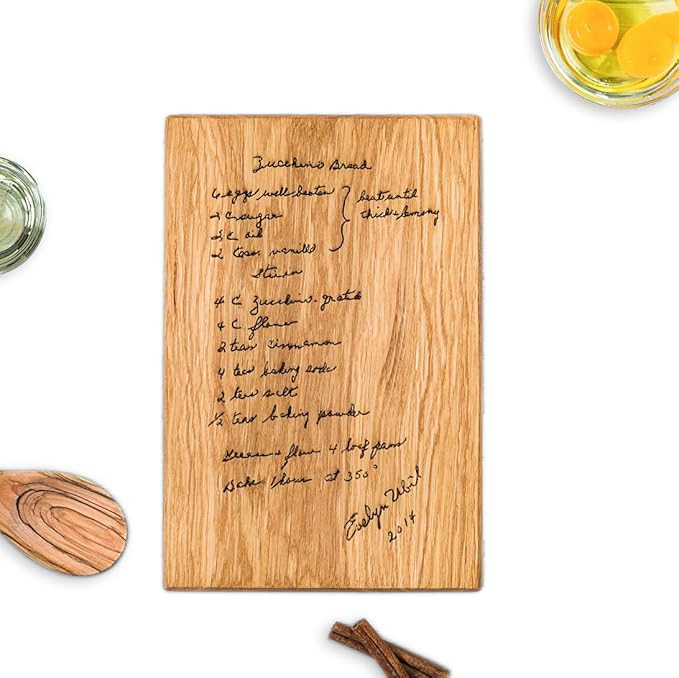 Zucchino Bread
6 eggs well beaten
C sugar
2 C oil
2 teas vanilla
beat until
thick & lemony
Stir in
4 C Zucchino - grated
4 C flour
2 teas cinnamon
4 teas baking soda
2 teas salt
1/2 teas baking powder
Grease + flour 4 loaf pans
Bake 1 hour at 350°
Evelyn
2014